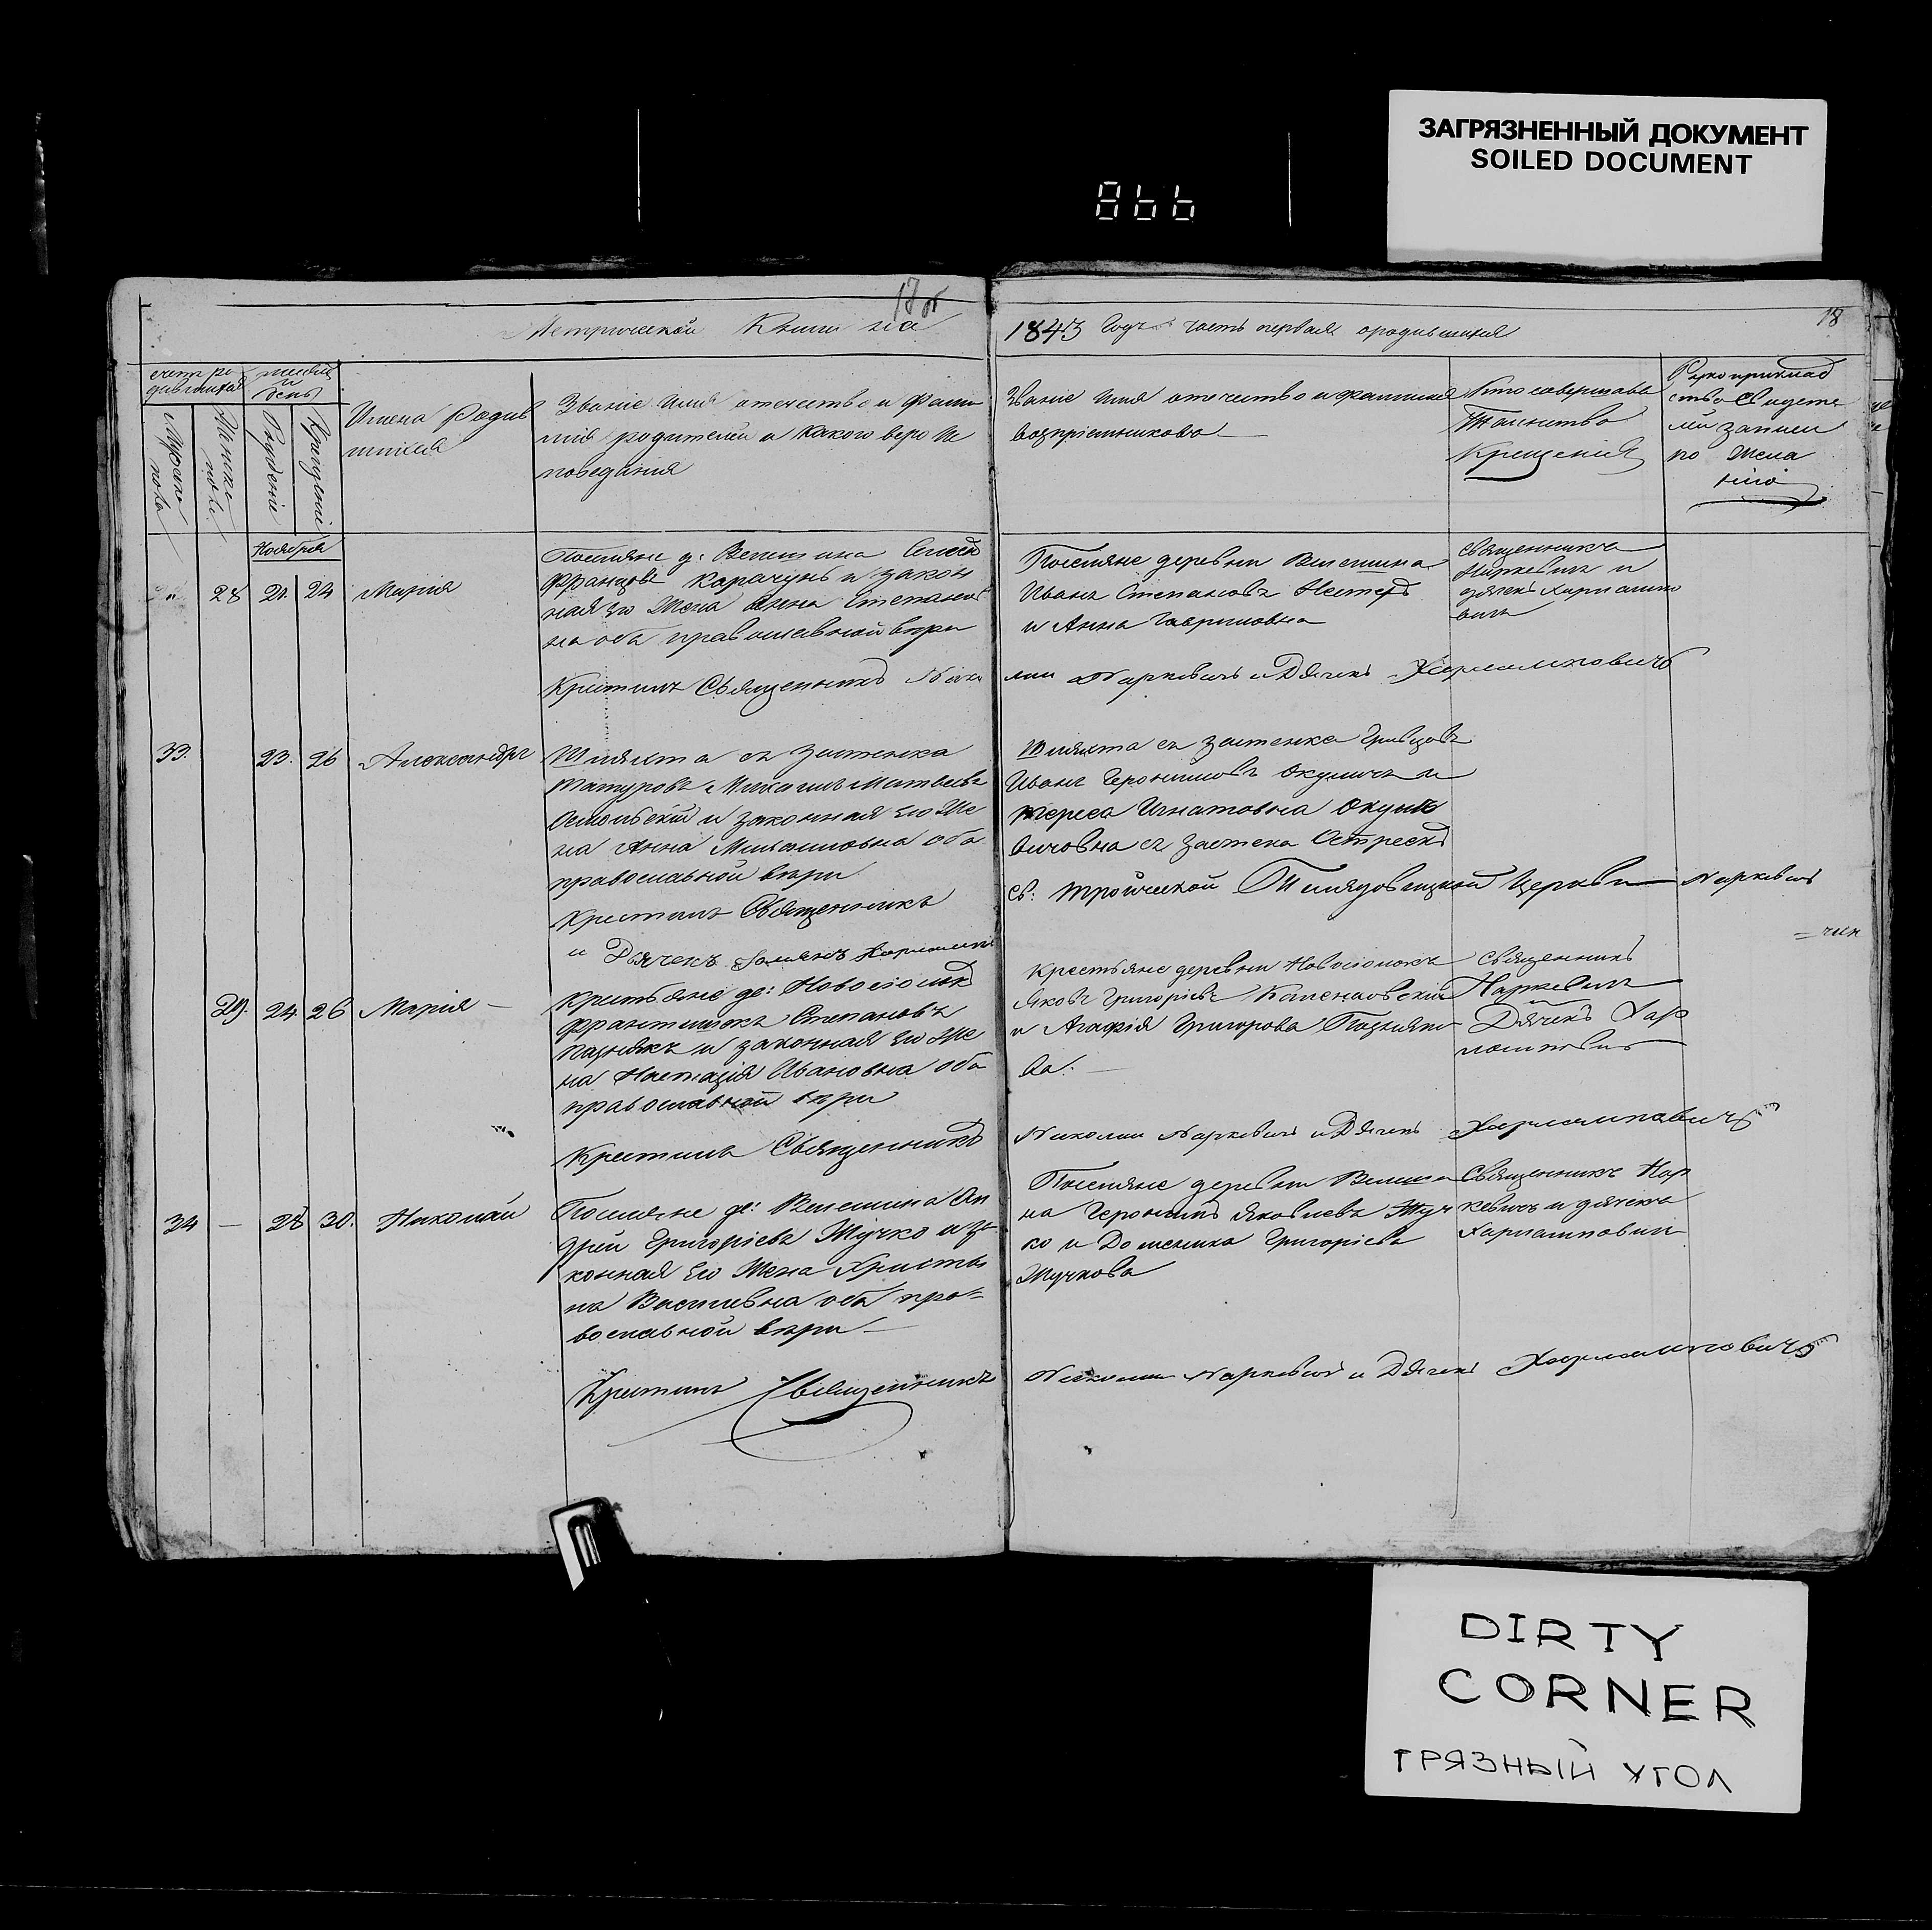 ЗАГРЯЗНЕННЫЙ ДОКУМЕНТ
SOILED DOCUMENT
866
17 об
Метрической Книги на
1843 Годъ часть первая ородившихся
18
счетъ ро
дившихся
месяц
и
день
Мужска
пола
Женска
пола
Рождение
Крещение
Имена Родив
шихся
Званіе Имя отечество и Фами
лія родителей и какого веро Ис
поведания
Званіе Имя отечество и фамилия
воспріемниковъ
Кто совершалъ
Таинство
Крещения
Рукоприклад
ство Свидете
лей записи
по Жела
нію
Ноября
28
21
24
Марія
Поселяне д: Велешина
Францовъ Карачунъ и закон
ная его Жена Анна Степанов
на оба православной вѣри
Поселяне деревни Велешина
Иванъ Степановъ Нестеръ
и Анна Гавриловна
Священникъ
Наркевичъ и
дячекъ Харлампо
вичъ
Крестилъ Священникъ Нико
лай Наркевичъ и Дячекъ Харлампович
33.
23.
26
Александръ
Шляхта съ Застенка
Татуровъ Михаилъ Матвеевъ
Осмольскій и законная его Же
на Анна Михаиловна оба
православной вѣри
Шляхта съ застенка
Иванъ Геронимовъ Окуличъ и
Тереса Игнатовна Окули
човна съ застенка
Крестилъ Священникъ
Св: Тройческой Церкви Наркевичъ
и Дьячекъ
29.
24
26
Марія
Крестьяне де: Новосіолкъ
Францишокъ Степановъ
Пазнякъ и законная его Же
на Настазія Ивановна оба
православной вѣри
Крестьяне деревни Новосіолокъ
Яковъ Григоріевъ
и Агафія Григорова Позняко
ва.
Священникъ
Наркевичъ
Дячекъ Хар
лампович
Крестилъ Священникъ
Николай Наркевичъ и Дячекъ Харлампавичъ
34
28
30.
Николай
Поселяне де: Велешина Ан
дрей Григоріевъ Жучко и за
конная его Жена Христи
на Василевна оба пра=
вославной вѣри
Поселяне деревни Велеши
на Геронимъ Яковлевъ Жуч
ко и Доменика Григоріева
Жучкова
Священникъ Нар
кевичъ и дячекъ
Харлампович
Крестилъ Священникъ
Николай Наркевичъ и Дячекъ Харлампович
DIRTY
CORNER
ГРЯЗНЫЙ УГОЛ